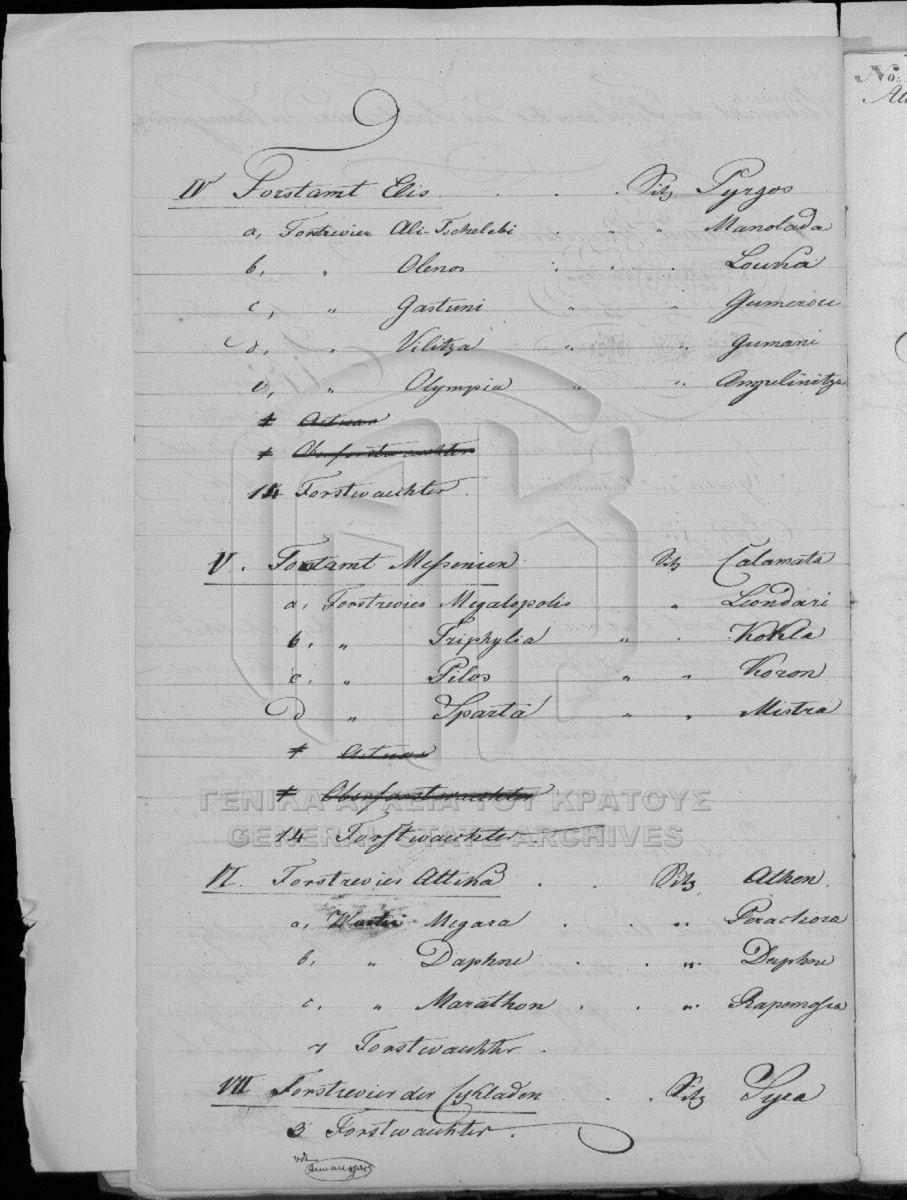 IV Forstamt Elis . . . Sitz Pyrgos
a, Forstrevier Ali-Tschelebi . " " Manolada
b, " Olenos . " Louka
c, " Gastuni " " Gumerou
d, " Vilitza " " Gumani
e, " Olympia " " Angelinitza
1 Actuar
1 Oberforstwaechter
14 Forstwaechter.
V. Forstamt Messenien Sitz Calamata
a, Forstrevier Megalopolis " Leondari
b, " Triphylia " " Kokla
c, " Pilos " " Koron
d " Sparta " " Mistra
1 Actuar
1 Oberforstwaechter
ΓΕΝΙΚΑ ΑΡΧΕΙΑ ΤΟΥ ΚΡΑΤΟΥΣ
GENERAL STATE ARCHIVES
14 Forstwaechter.
VI. Forstrevier Attika . . Sitz Athen.
a, Wartei Megara . . " Perachora
b, " Daphne . . " Daphne
c, " Marathon . . "
7 Forstwaechter.
VII Forstrevier der Cykladen . . Sitz Syra
3 Forstwaechter.
No.